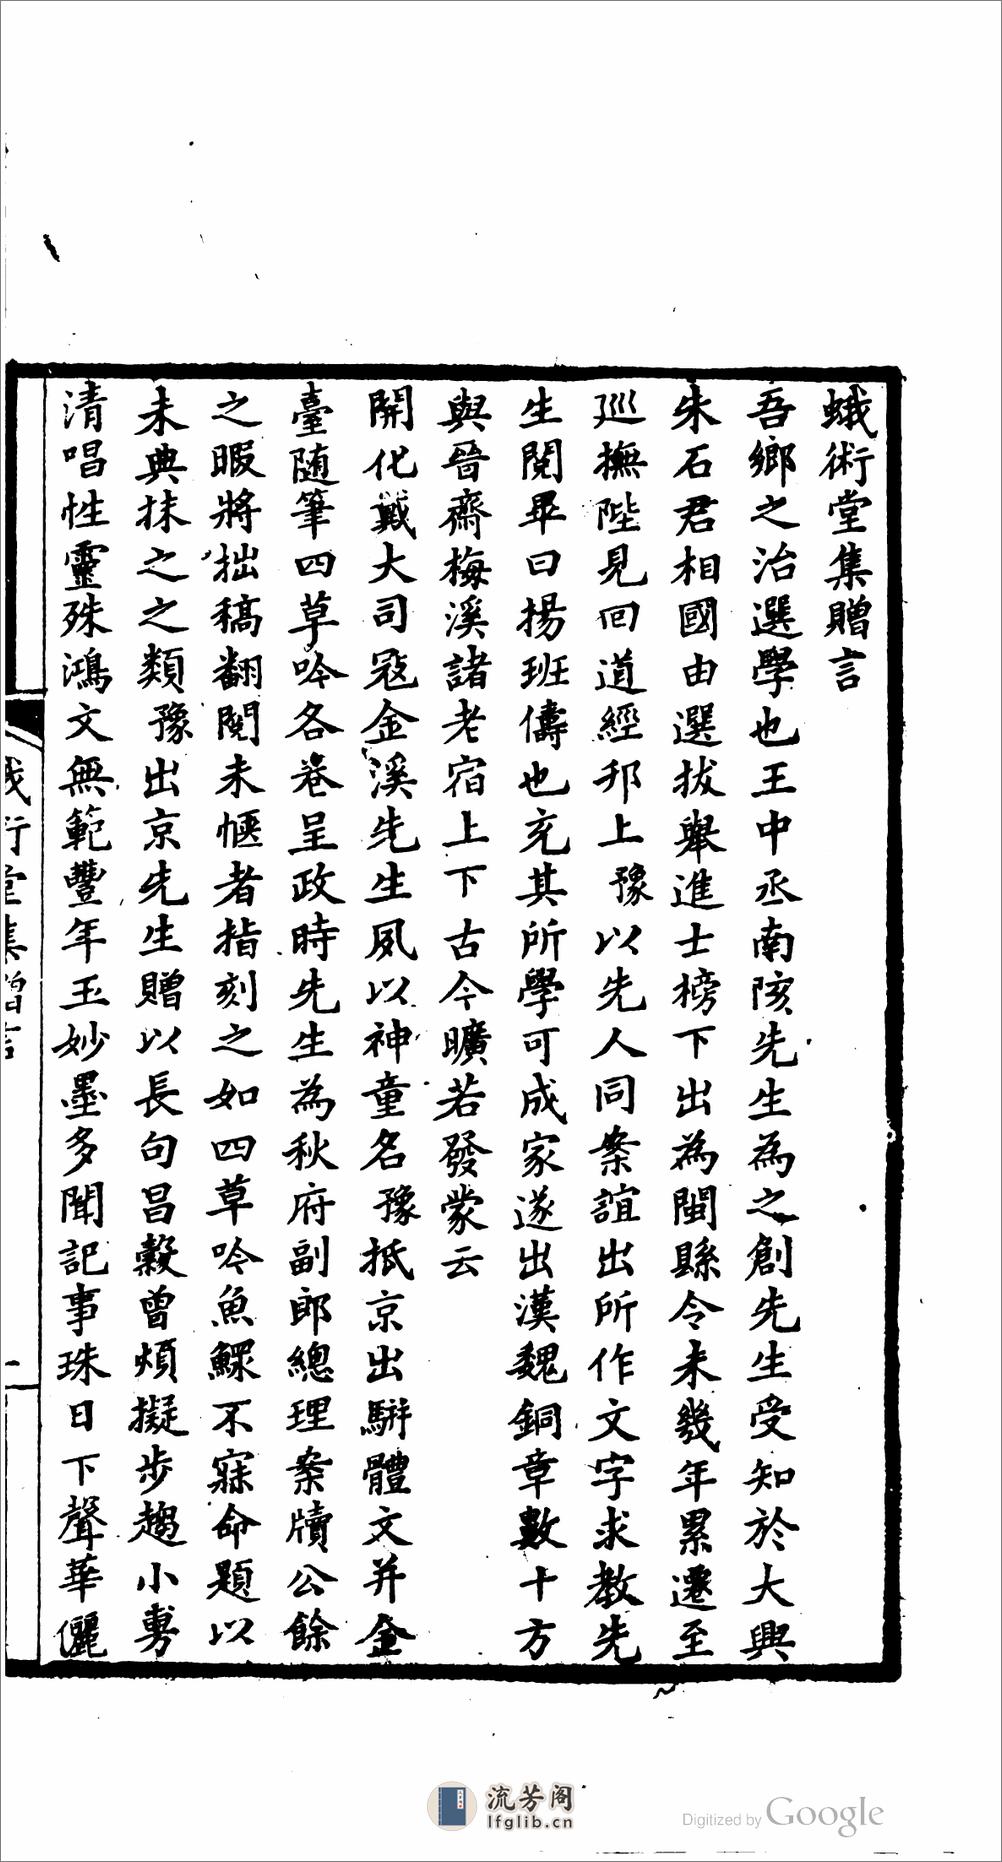 蛾術堂集贈言
吾鄉之治選學也王中丞南陔先生為之創先生受知於大興
朱石君相國由選拔舉進士榜下出為閩縣令未幾年累遷至
巡撫陛見回道經邗上豫以先人同案誼出所作文字求教先
生閱畢曰揚班儔也充其所學可成家遂出漢魏銅章數十方
與晉齋梅溪諸老宿上下古今曠若發蒙云
開化戴大司寇金溪先生夙以神童名豫抵京出駢體文并金
臺随筆四草吟各卷呈政時先生為秋府副郎總理案牘公餘
之暇將拙稿翻閱未愜者指刻之如四草吟魚鰥不寐命題以
未典抹之之類豫出京先生贈以長句昌穀曾煩擬步趨小勇
清唱性靈殊鴻文無範豐年玉妙墨多聞記事珠日下聲華儷
蛾術堂集贈言
一
流芳阁
lfglib.cn
Digitized by Google